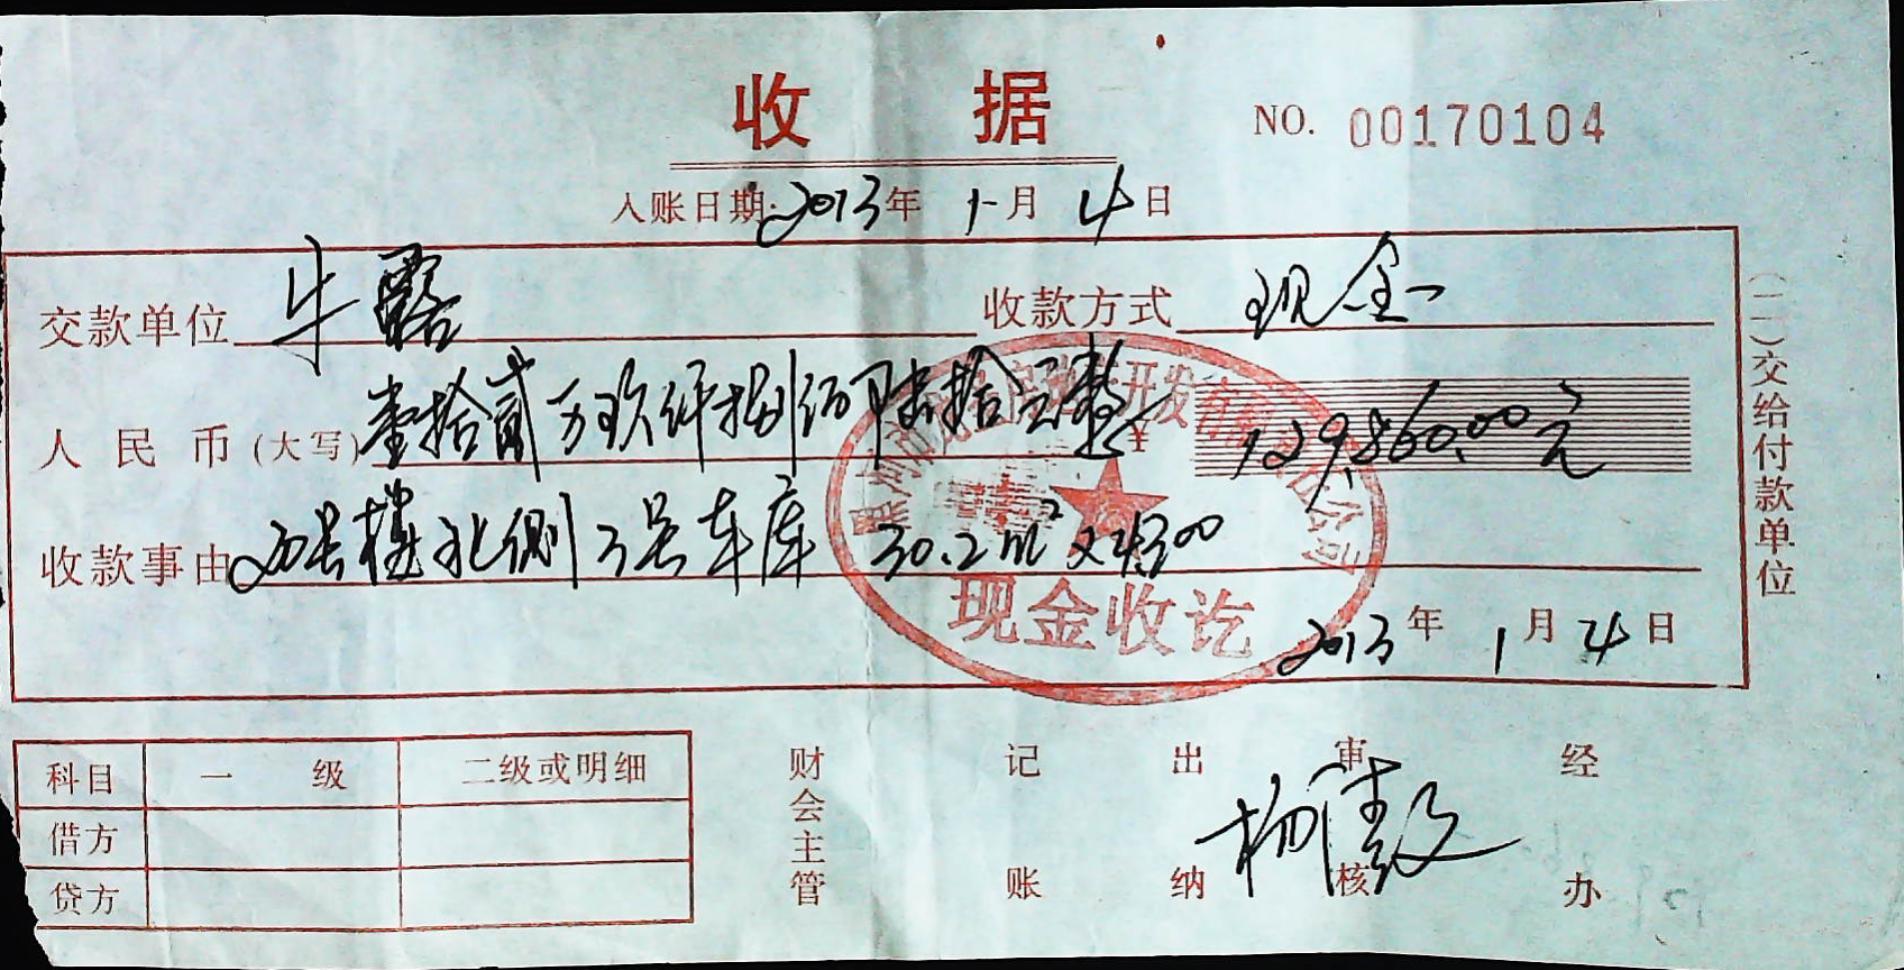 收 据
NO. 00170104
入账日期:2013年 1月 4日
交款单位 牛露 收款方式 现金
人民币(大写) 壹拾贰万玖仟捌佰陆拾元整 ¥ 129,860.00元
收款事由 西号楼北侧3号车库 30.2m²x4300
现金收讫
2013年 1月 4日
(二)交给付款单位
科目 一 级 二级或明细
借方
贷方
财会主管 记账 出纳 审核 经办